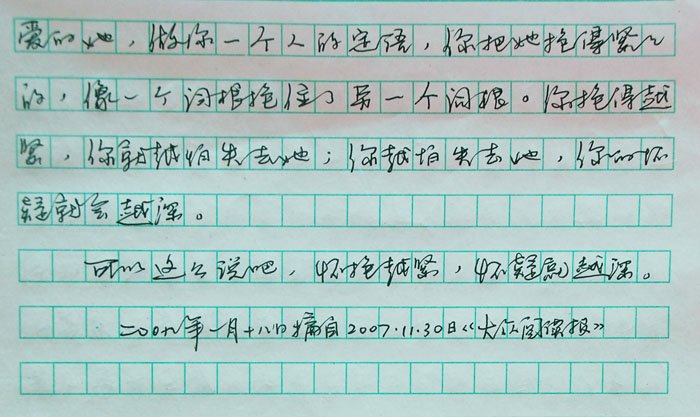 爱的她，做你一个人的定语，你把她抱得紧紧
的，像一个词根抱住了另一个词根。你抱得越
紧，你就越怕失去她；你越怕失去她，你的怀
疑就会越深。
可以这么说吧，怀抱越紧，怀疑就越深。
二00九年一月十八日摘自2007.11.30日《大众阅读报》